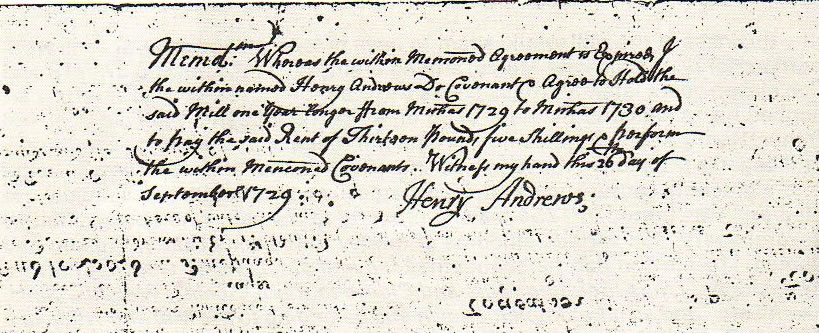 Memd:m Whereas the within Menconed Agreement is Expired, I
the within named Henry Andrews Do Covenant & Agree to Hold the
said Mill one Year longer from Michas 1729 to Michas 1730 and
to pay the said Rent of Thirteen Pounds five Shillings & perform
the within Menconed Covenants. Witness my hand this 26 day of
September 1729
Henry Andrews